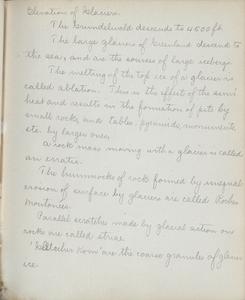 Elevation of Glaciers.
The Grindelwald descends to 4500 ft.
The large glaciers of Greenland descend to
the sea, and are the sources of large icebergs.
The melting of the top ice of a glacier is
called ablation. This is the effect of the sun's
heat and results in the formation of pits by
small rocks and tables, pyramids, monuments
etc. by larger ones.
A rock mass moving with a glacier is called
an erratic.
The hummocks of rock formed by unequal
erosion of surface by glaciers are called Roches
Moutonees.
Parallel scratches made by glacial action on
rocks are called striae.
are the coarse granules of glacier
ice.